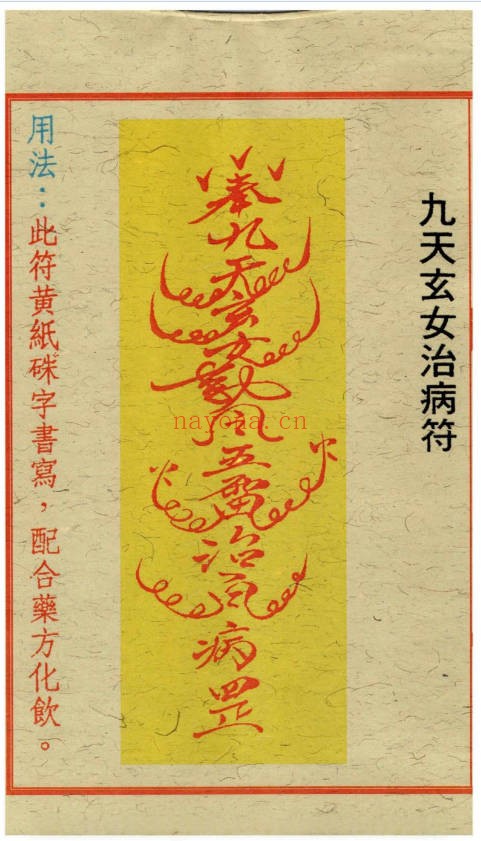 九天玄女治病符
奉九天玄女敕風五雷治百病罡
火 火
用法：此符黃紙硃字書寫，配合藥方化飲。
nayona.cn